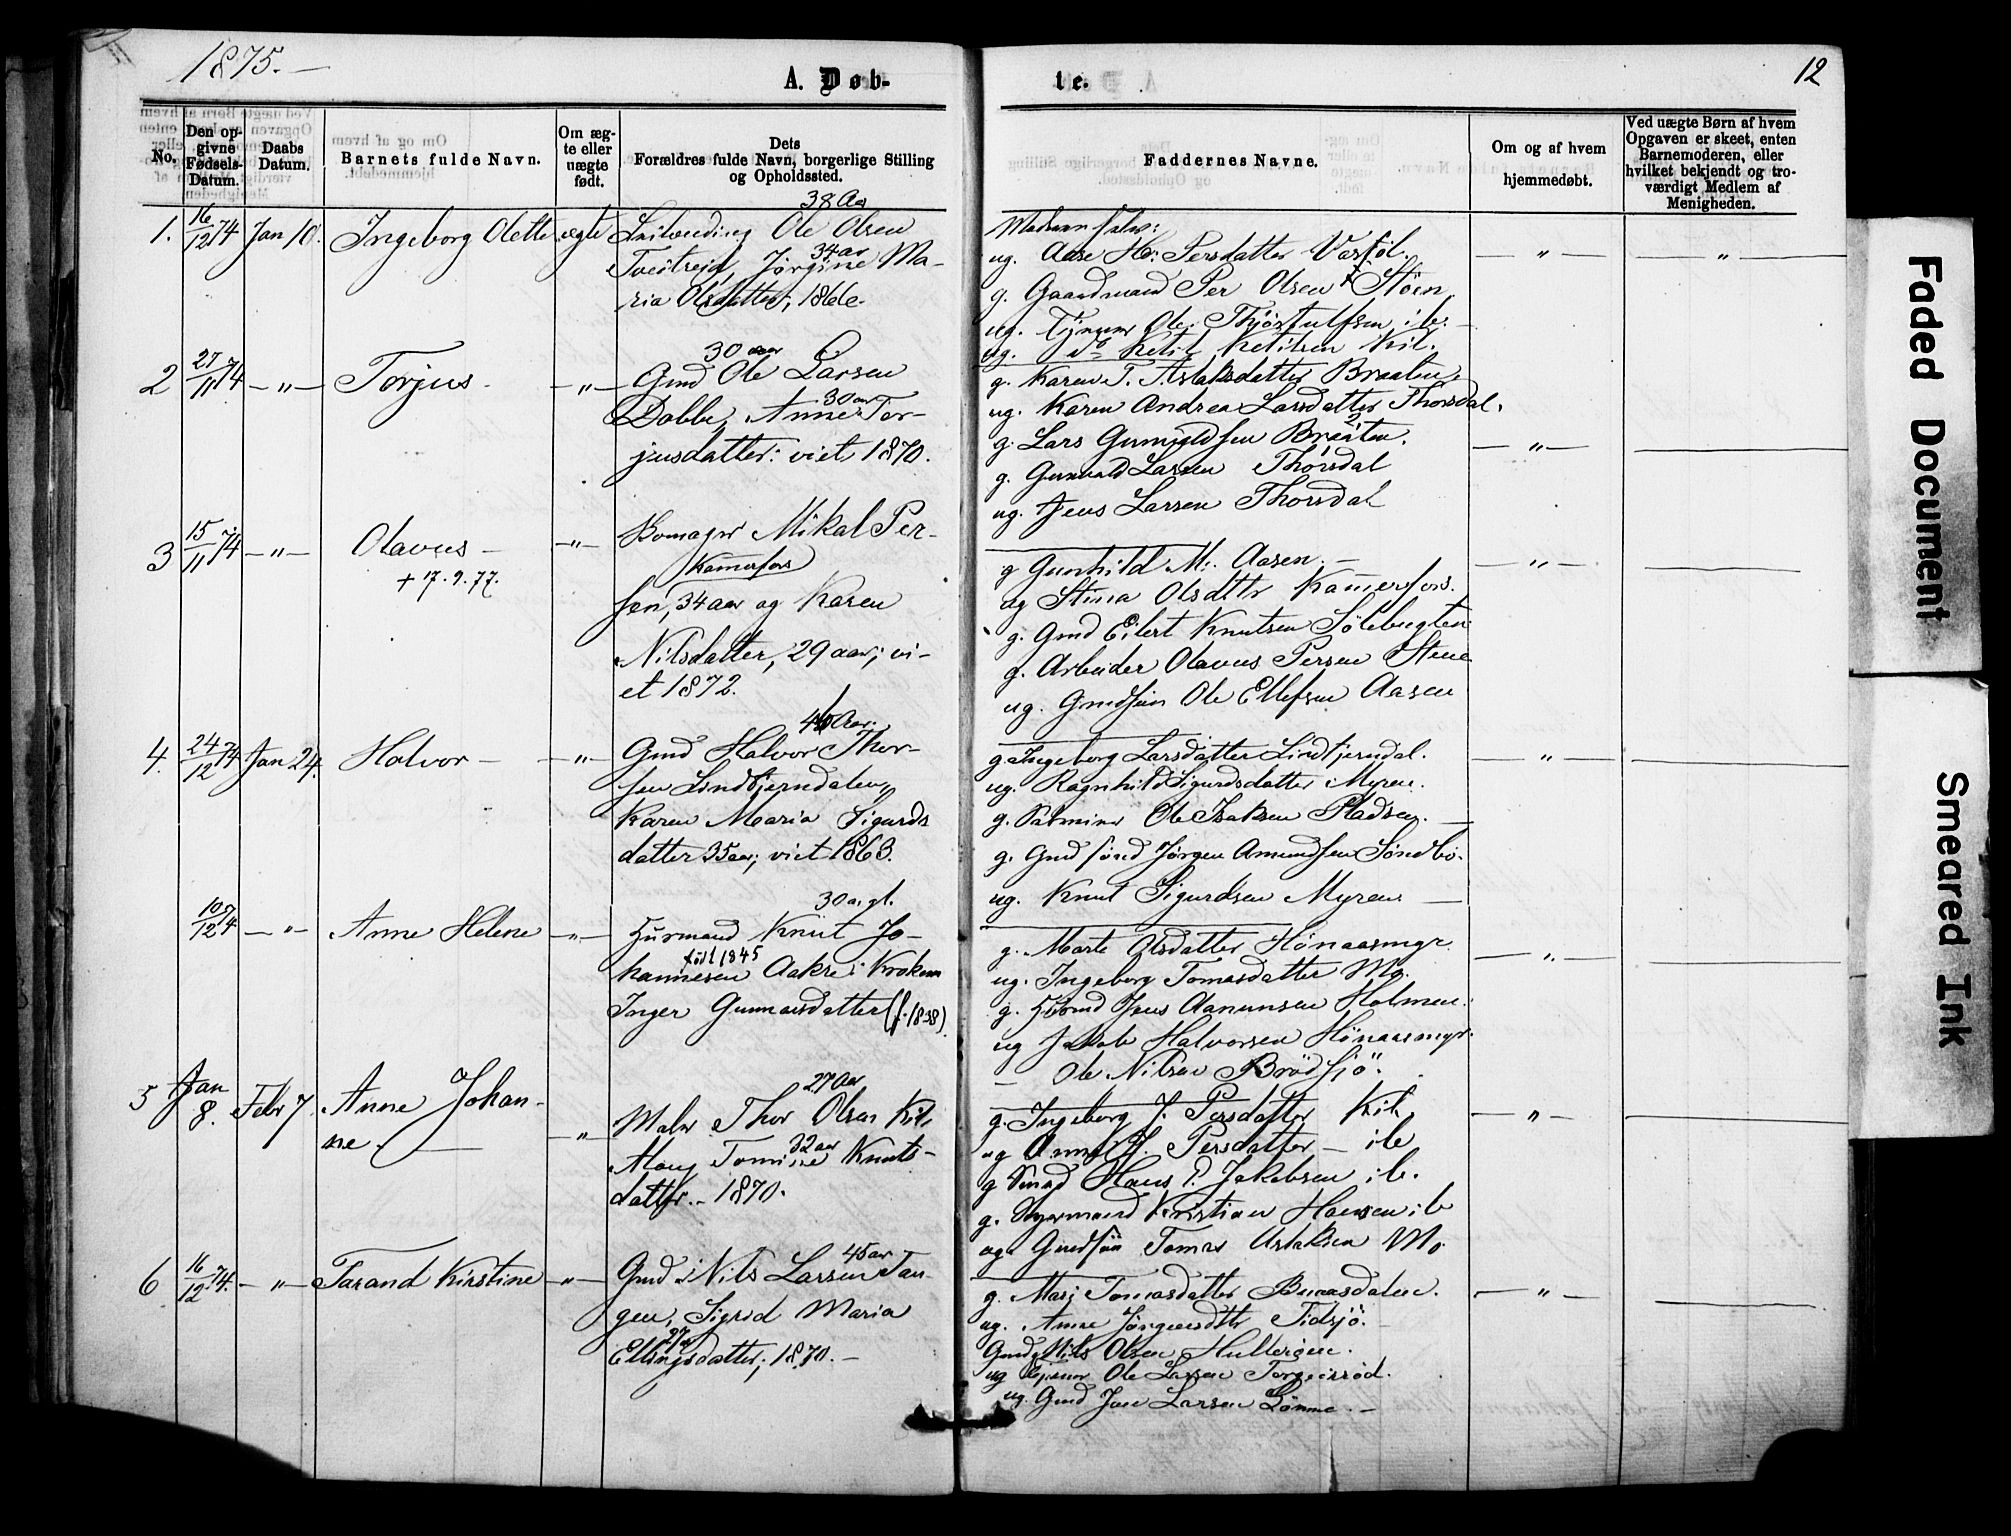 1875.—
12
A. Døb-
te.
No.
Den op-
givne
Fødsels-
Datum.
Daabs
Datum.
Barnets fulde Navn.
Om æg-
te eller
uægte
født.
Dets
Forældres fulde Navn, borgerlige Stilling
og Opholdssted.
Faddernes Navne.
Om og af hvem
hjemmedøbt.
Ved uægte Børn af hvem
Opgaven er skeet, enten
Barnemoderen, eller
hvilket bekjendt og tro-
værdigt Medlem af
Menigheden.
1. 16/12 74 Jan 10. Ingeborg Olette ægte
38 Aar
Ole Olsen
Tveitreid, Jørgine Ma-
34 aar
ria Olsdatter, 1866.
ug. Aase H: Persdatter Vasføl.
g. Gaardmand Per Olsen Støen
ug. Ole Thjøstulfsen ib.
ug. do Ketil Ketilsen Kil.
— „ —
— „ —
2 27/11 74 — „ — Torjus — — „ —
30 aar
Gmd Ole Larsen
Dobbe, Anne Tor-
30 aar
jusdatter: viet 1870.
g. Karen T. Aslaksdatter Braaten
ug. Karen Andrea Larsdatter Thorsdal.
g. Lars Gunuldsen Braaten.
g. Gunvald Larsen Thorsdal
ug. Jens Larsen Thorsdal
— „ —
3 15/11 74 — „ — Olavus — — „ —
+ 17.9.77.
Bomager Mikal Per-
Kamerfos
sen, 34 aar og Karen
Nilsdatter, 29 aar; vi-
et 1872.
g Gunhild M. Aasen —
ug Stina Olsdttr Kamerfos.
g. Gmd Eilert Knutsen Sølebugten
g. Arbeider Olavus Persen Stene
ug. Gmdsøn Ole Ellefsen Aasen
— „ —
4. 24/12 74 Jan 24. Halvor — — „ —
46 Aar.
Gmd Halvor Thor-
sen Lindtjerndalen,
Karen Maria Sigurds
datter 35 aar; viet 1863.
g Ingeborg Larsdatter Lindtjerndal.
ug. Ragnhild Sigurdsdatter Myren.
g. Ole Isaksen Pladsen. —
g. Gmd Jørgen Amundsen Søndbø.
ug. Knut Sigurdsen Myren —
— „ —
10/12 74 — „ — Anne Helene — „ —
30 a. gl.
Husmand Knut Jo-
født 1845
hannesen Aakre i Kroken
Inger Gunnarsdatter (f. 1838).
g. Marte Olsdatter Hønaasmyr
ug. Ingeborg Tomasdatter Mo.
g. Jens Aanunsen Holmen.
ug Jakob Halvorsen Hønaasmyr.
— Ole Nilsen Brødsjö.
— „ —
5 Jan 8. Febr 7. Anne Johan-
ne. — — „ —
27 Aar
Maler Thor Olsen Kil,
32 aar
Tomine Knuts-
datter. — 1870.
g. Ingeborg J. Persdatter Kil,
ug Anne H. Persdatter — ib
g Smed Hans P. Jakobsen ib.
g. Styrmand Kristian Hansen ib
ug. Gmdsön Tomas Aslaksen Mo.
— „ —
6 16/12 74. — „ — Tarand Kirstine — „ —
45 aar
Gmd Nils Larsen Tan-
gen, Sigrid Maria
27
Ellingsdatter; 1870. —
g. Mari Tomasdatter Buaasdalen.
ug. Anne Jörgensdttr Tidsjö.
Gmd Nils Olsen Hulleröen.
ug Ole Larsen Torgeirsöd.
ug. Gmd Jan Larsen Lønne. —
— „ —
Faded Document
Smeared Ink